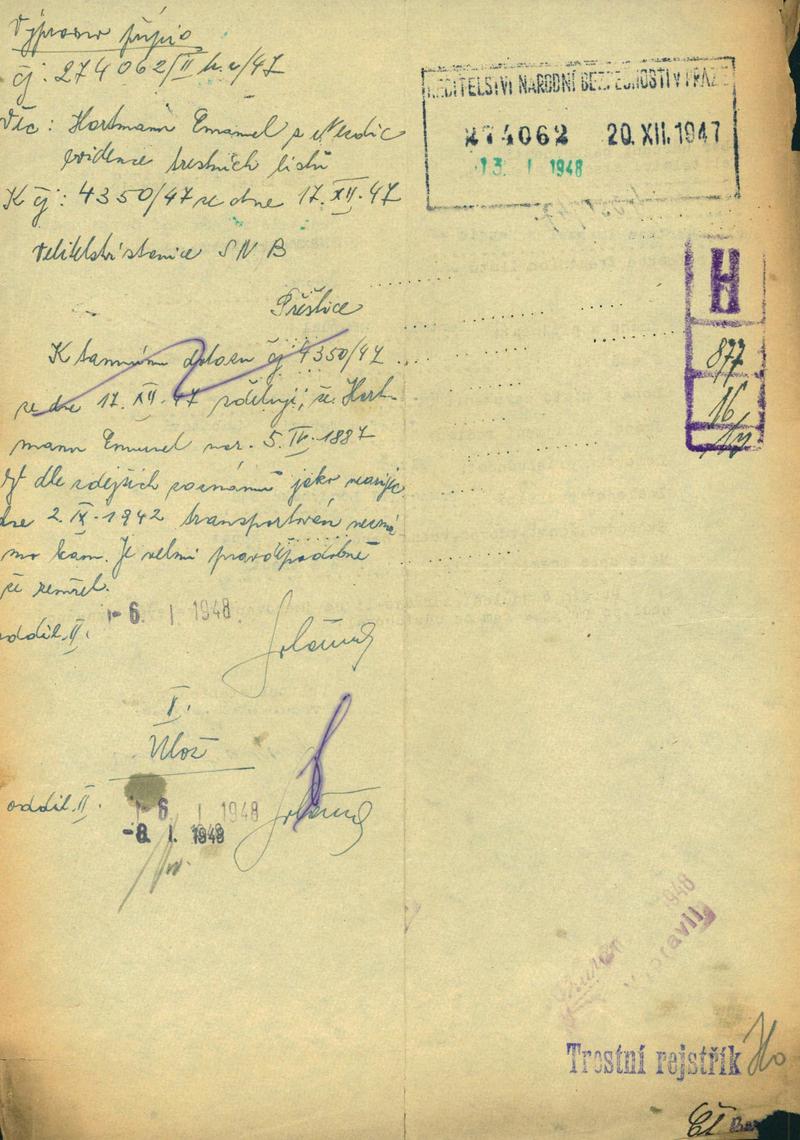 čj: 274062/II h.v/47
Věc: Hartmann Emanuel z Nezdic
evidence trestních listů
K čj: 4350/47 ze dne 17. XII. 47
Velitelství stanice SNB
Přeštice
K tamnímu dotazu čj 4350/47
ze dne 17. XII. 47 sděluji, že Hart-
mann Emanuel nar. 5. IV. 1887
byl dle zdejších záznamů jako
dne 2. IX. 1942 transportován nezná
mo kam. Je velmi pravděpodobné
že zemřel.
oddíl. II.
- 6. I. 1948
I.
Ulož
oddíl. II.
- 6. I. 1948
-8. I. 1948
ŘEDITELSTVÍ NÁRODNÍ BEZPEČNOSTI V PRAZE
274062 20. XII. 1947
13. I 1948
H
877
16
Vypravil
1948
Trestní rejstřík